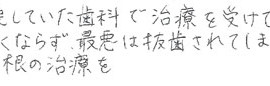 していた歯科で治療を受けて
くならず、最悪は抜歯されてしま
根の治療を